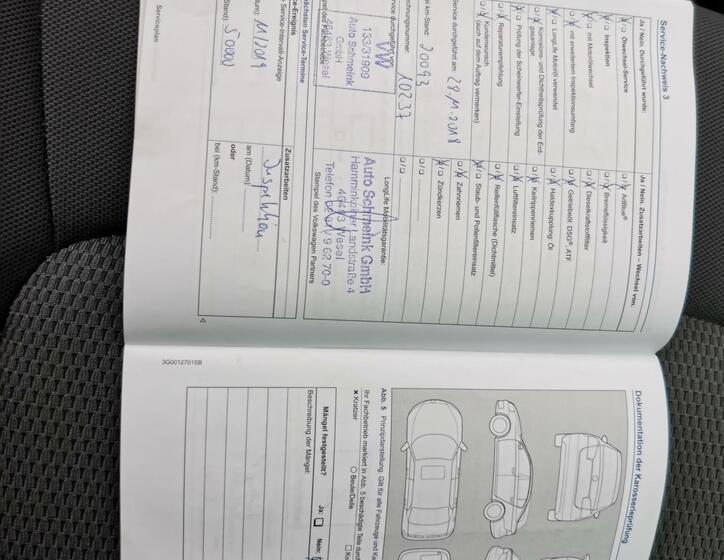 Service-Nachweis 3
Ja / Nein. Durchgeführt wurde:
Ölwechsel-Service
Inspektion
mit Motorölwechsel
mit erweitertem Inspektionsumfang
LongLife Motoröl verwendet
Korrosions- und Dichtheitsprüfung der Erd-
gasanlage
Prüfung der Scheinwerfer-Einstellung
Reparaturempfehlung
Kundenwunsch
(auch auf dem Auftrag vermerken)
Service durchgeführt am: 29.11.2018
ei km-Stand: 20093
chnungsnummer: 10237
rvice durchgeführt von:
VW
133/31909
Auto Schmeink
GmbH
46483 Wesel
pel des Fachbetriebs
Ja / Nein. Zusatzarbeiten – Wechsel von:
AdBlue®
Bremsflüssigkeit
Dieselkraftstofffilter
Getriebeöl: DSG®, ATF
Haldexkupplung: Öl
Keilrippenriemen
Luftfiltereinsatz
Reifenfüllflasche (Dichtmittel)
Staub- und Pollenfiltereinsatz
Zahnriemen
Zündkerzen
LongLife Mobilitätsgarantie:
Auto Schmeink GmbH
Hamminkelner Landstraße 4
46483 Wesel
Telefon 02 81/ 9 62 70-0
Stempel des Volkswagen Partners
ächsten Service-Termine
ce-Ereignis
Service-Intervall-Anzeige
tum): 11/2019
Stand): 50000
Zusatzarbeiten
Inspektion
am (Datum):
oder
bei (km-Stand):
Serviceplan
3G0012701SB
Dokumentation der Karosserieprüfung
Abb. 5 Prinzipdarstellung. Gilt für alle Fahrzeuge und Ka
Ihr Fachbetrieb markiert in Abb. 5 beschädigte Teile durc
× Kratzer
Beule/Delle
Mängel festgestellt?
Ja:
Nein:
Beschreibung der Mängel: